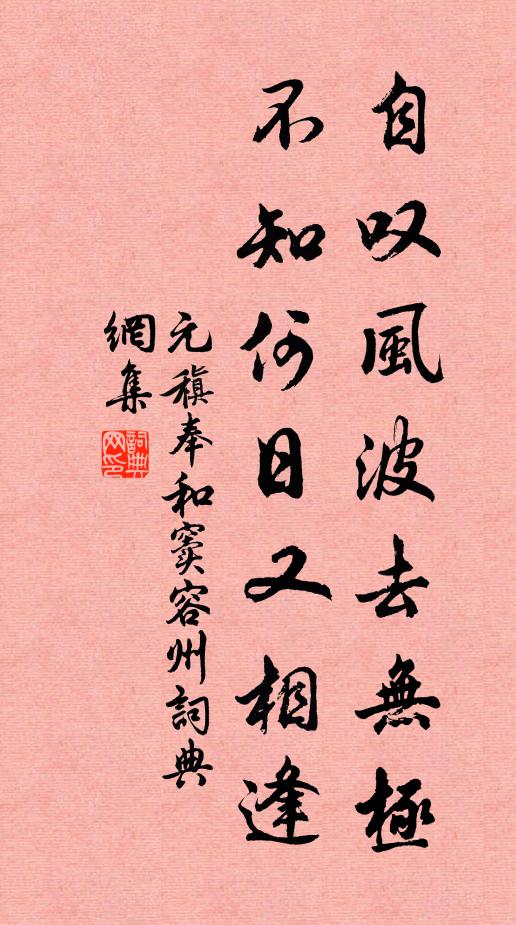 自叹風波去無極
不知何日又相逢
元稹奉和窦容州詞典
網集
詞典网印